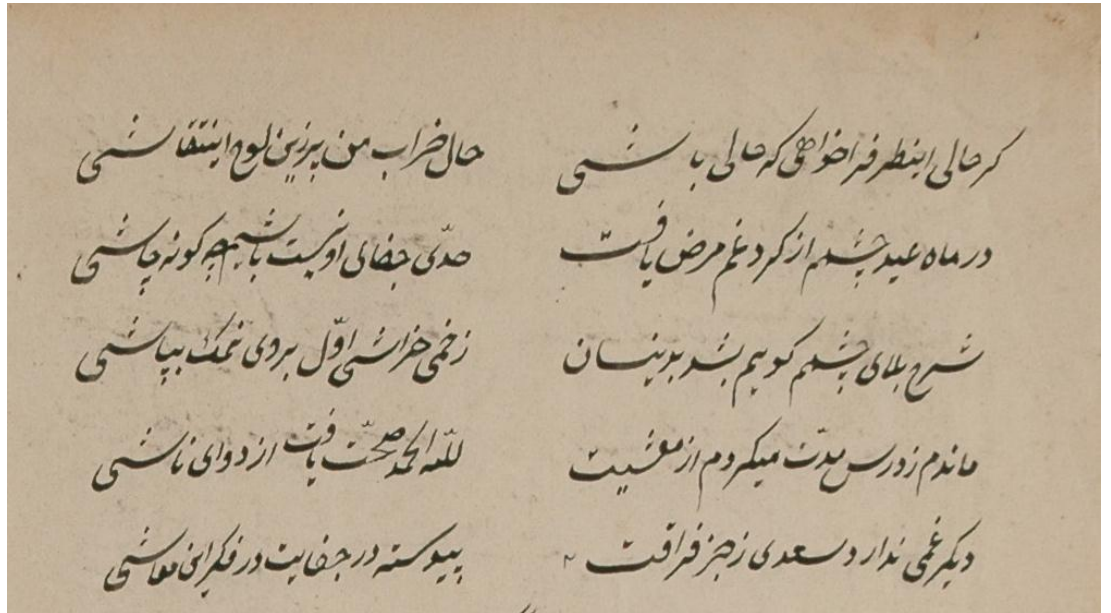 کر حالی اینطرف را خواهی که حالی باشی حال خراب من پرزین لوح اینتقاشی
در ماه عید چشمم از کرد غم مرض یافت حدّی جفای او نیست باشیم چه کونه چاشی
شرح بلای چشمم کویم بشد بدینسان زخمی خراشی اوّل بروی نمک بپاشی
ماندم ز درس مدّت میکردم از معشیت للّه الحمد صحّت یافت از دوای ناشی
دیکر غمی ندارد سعدی ز هجر فراقت پیوسته در جفایت در فکر این معاشی